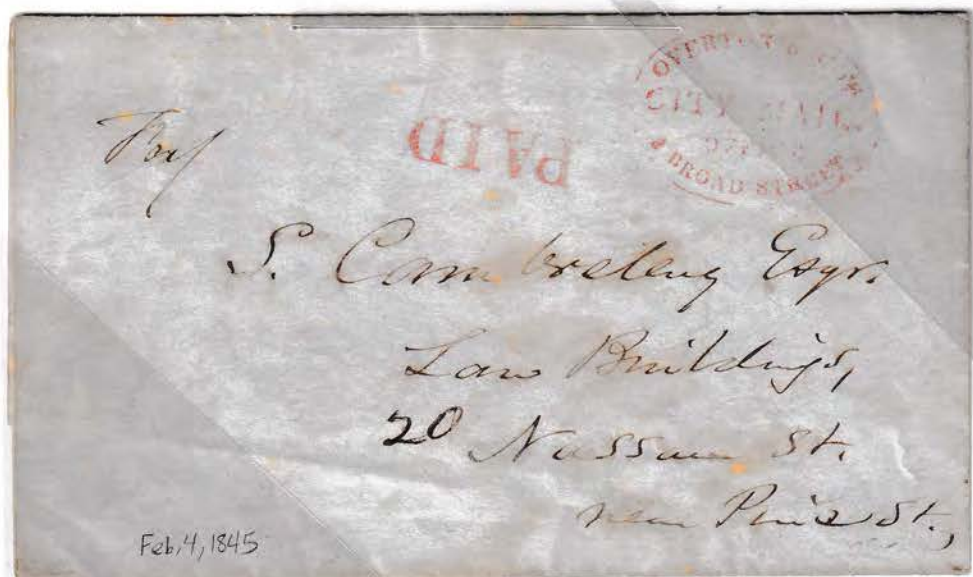 OVERTON & CO'S
CITY MAIL
BROAD STREET
PAID
S. Cambreleng Esqr.
Law Buildings,
20 Nassau St.
near Pine St.,
Feb, 4, 1845